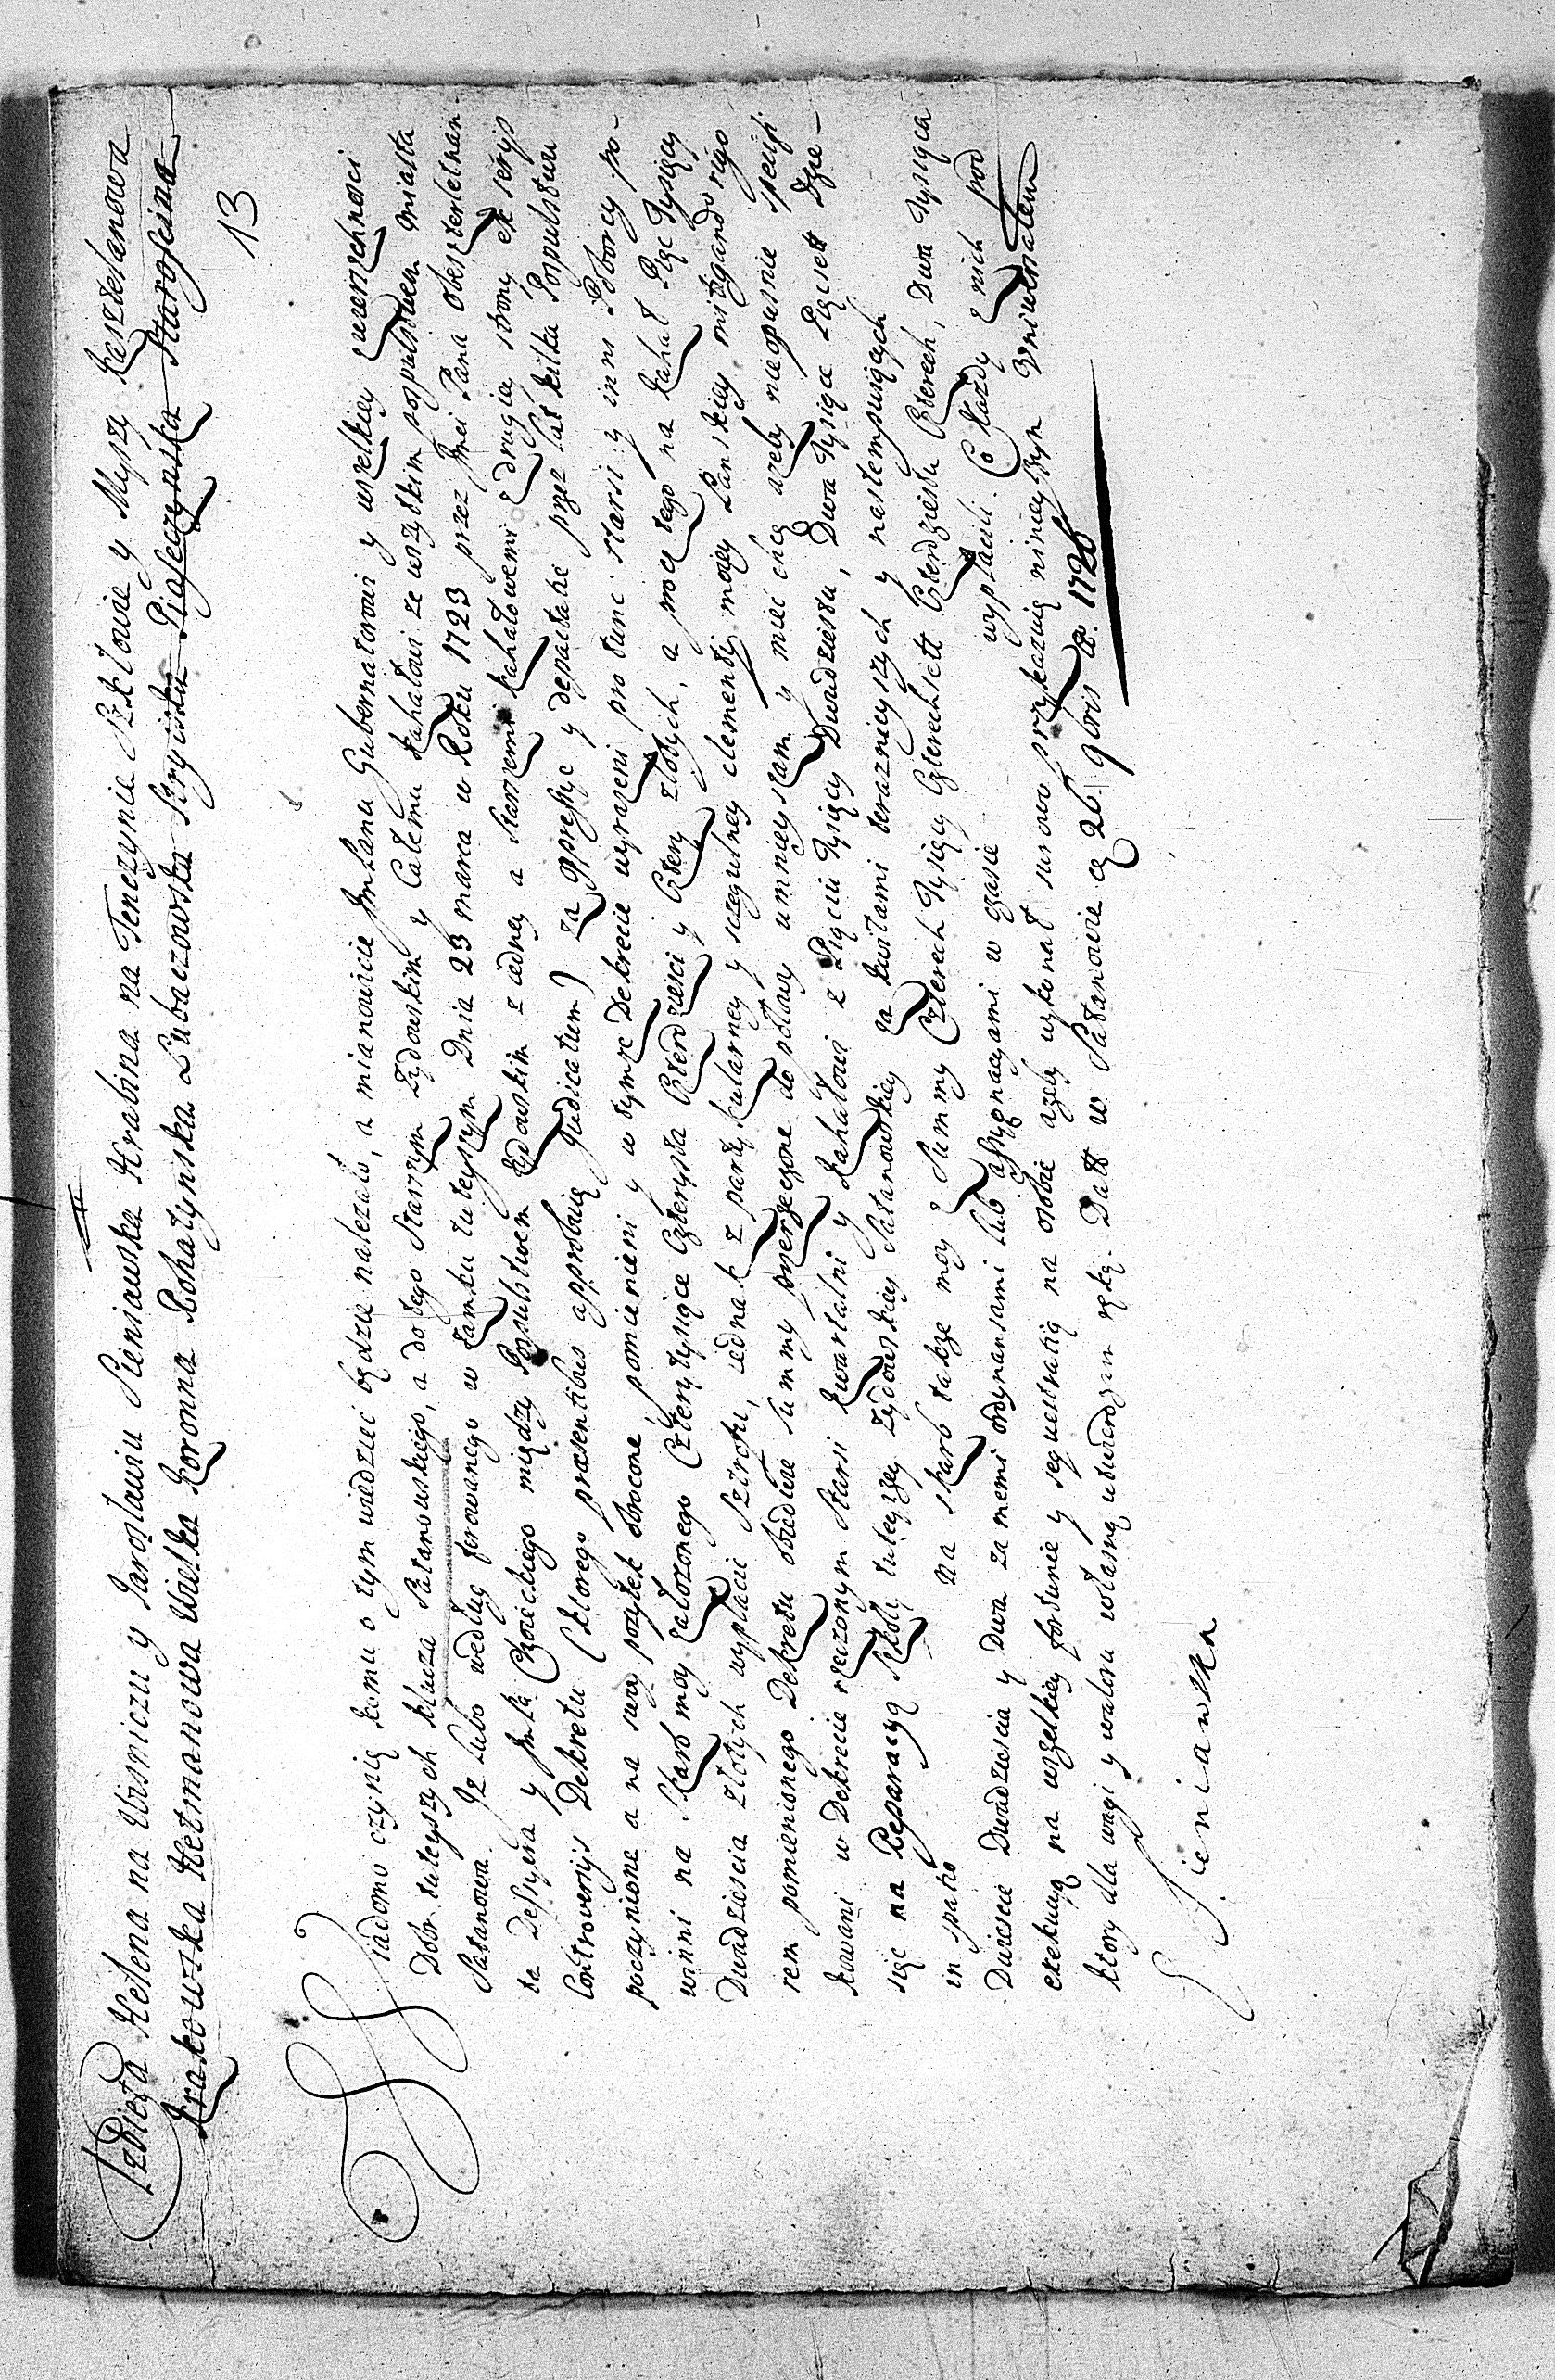 Elzbieta Helena na Wisniczu y Jarosławiu Sieniawska Hrabina na Tenczynie Szkłowie y Myszy Kasztelanowa
Krakowska Hetmanowa Wielka Koronna Rohatynska Lubaczowska Stryiska Piaseczynska Starościna
13
Wiadomo czynię komu o tym wiedziec będzie nalezało, a mianowicie ImPanu Gubernatorowi y wszelkiey zwierzchnosci
Dobr tuteyszych klucza Satanowskiego, a do tego Starszym Zydowskim y Całemu kahałowi ze wszystkim pospulstwem miasta
Satanowa. Iz lubo według ferowanego w Zamku tuteyszym Dnia 23 marca w Roku 1723 przez Jmci Pana Oberszterletnan
ta Deszyera y JmPa Choieckiego między Pospulstwem Zydowskim z iedney a Starszemi kahałowemi z drugiey strony ex serijs
Controversijs Dekretu (ktorego præsentibus approbuię Judicatum) za oppressye y depactatie przez lat kilka Pospulstwu
poczynione a na swoy pozytek obrocone, pomienieni y w tymze Dekrecie wyrazeni pro tunc starsi y inni Poborcy po-
winni na skarb moy załozonego Cztery tysiące Czterysta Czterdziesci y Cztery złotych, a procz tego na kahał Pięc Tysięcy
Dwadziescia złotych wypłacic Sztrofu, iednak z partykularney y sczegulney clementij moiey Panskiey mitigando rigo
rem pomienionego Dekretu obiedwie Summy przerzeczone do połowy umnieyszam y miec chcę azeby nieopusnie specifi
kowani w Dekrecie rzeczonym Starsi kwartalni y Kahałowi z Pięciu Tysięcy Dwudziestu, Dwa Tysiące Pięcsett Dzie-
sięc na Reparacyą Szkoły tuteyszey Zydowskiey Satanowskiey za kwitami teraznieyszych y nastempuiących
in spatio Na skarb takze moy z Summy Czterech Tysięcy Czterechsett Czterdziestu Czterech, Dwa Tysiąca
Dwiescie Dwadziescia y Dwa za memi ordynansami lub assygnacyami w czasie wypłacili. Co kazdy z nich pod
exekucyą na wszelkiey fortunie y sequestratią na osobie azeby wykonał surowo przykazuię ninieyszym Uniwersałem
ktory dla wagi y waloru własną utwierdzam ręką. Datt w Satanowie 26 9bris A. 1726
E Sieniawska